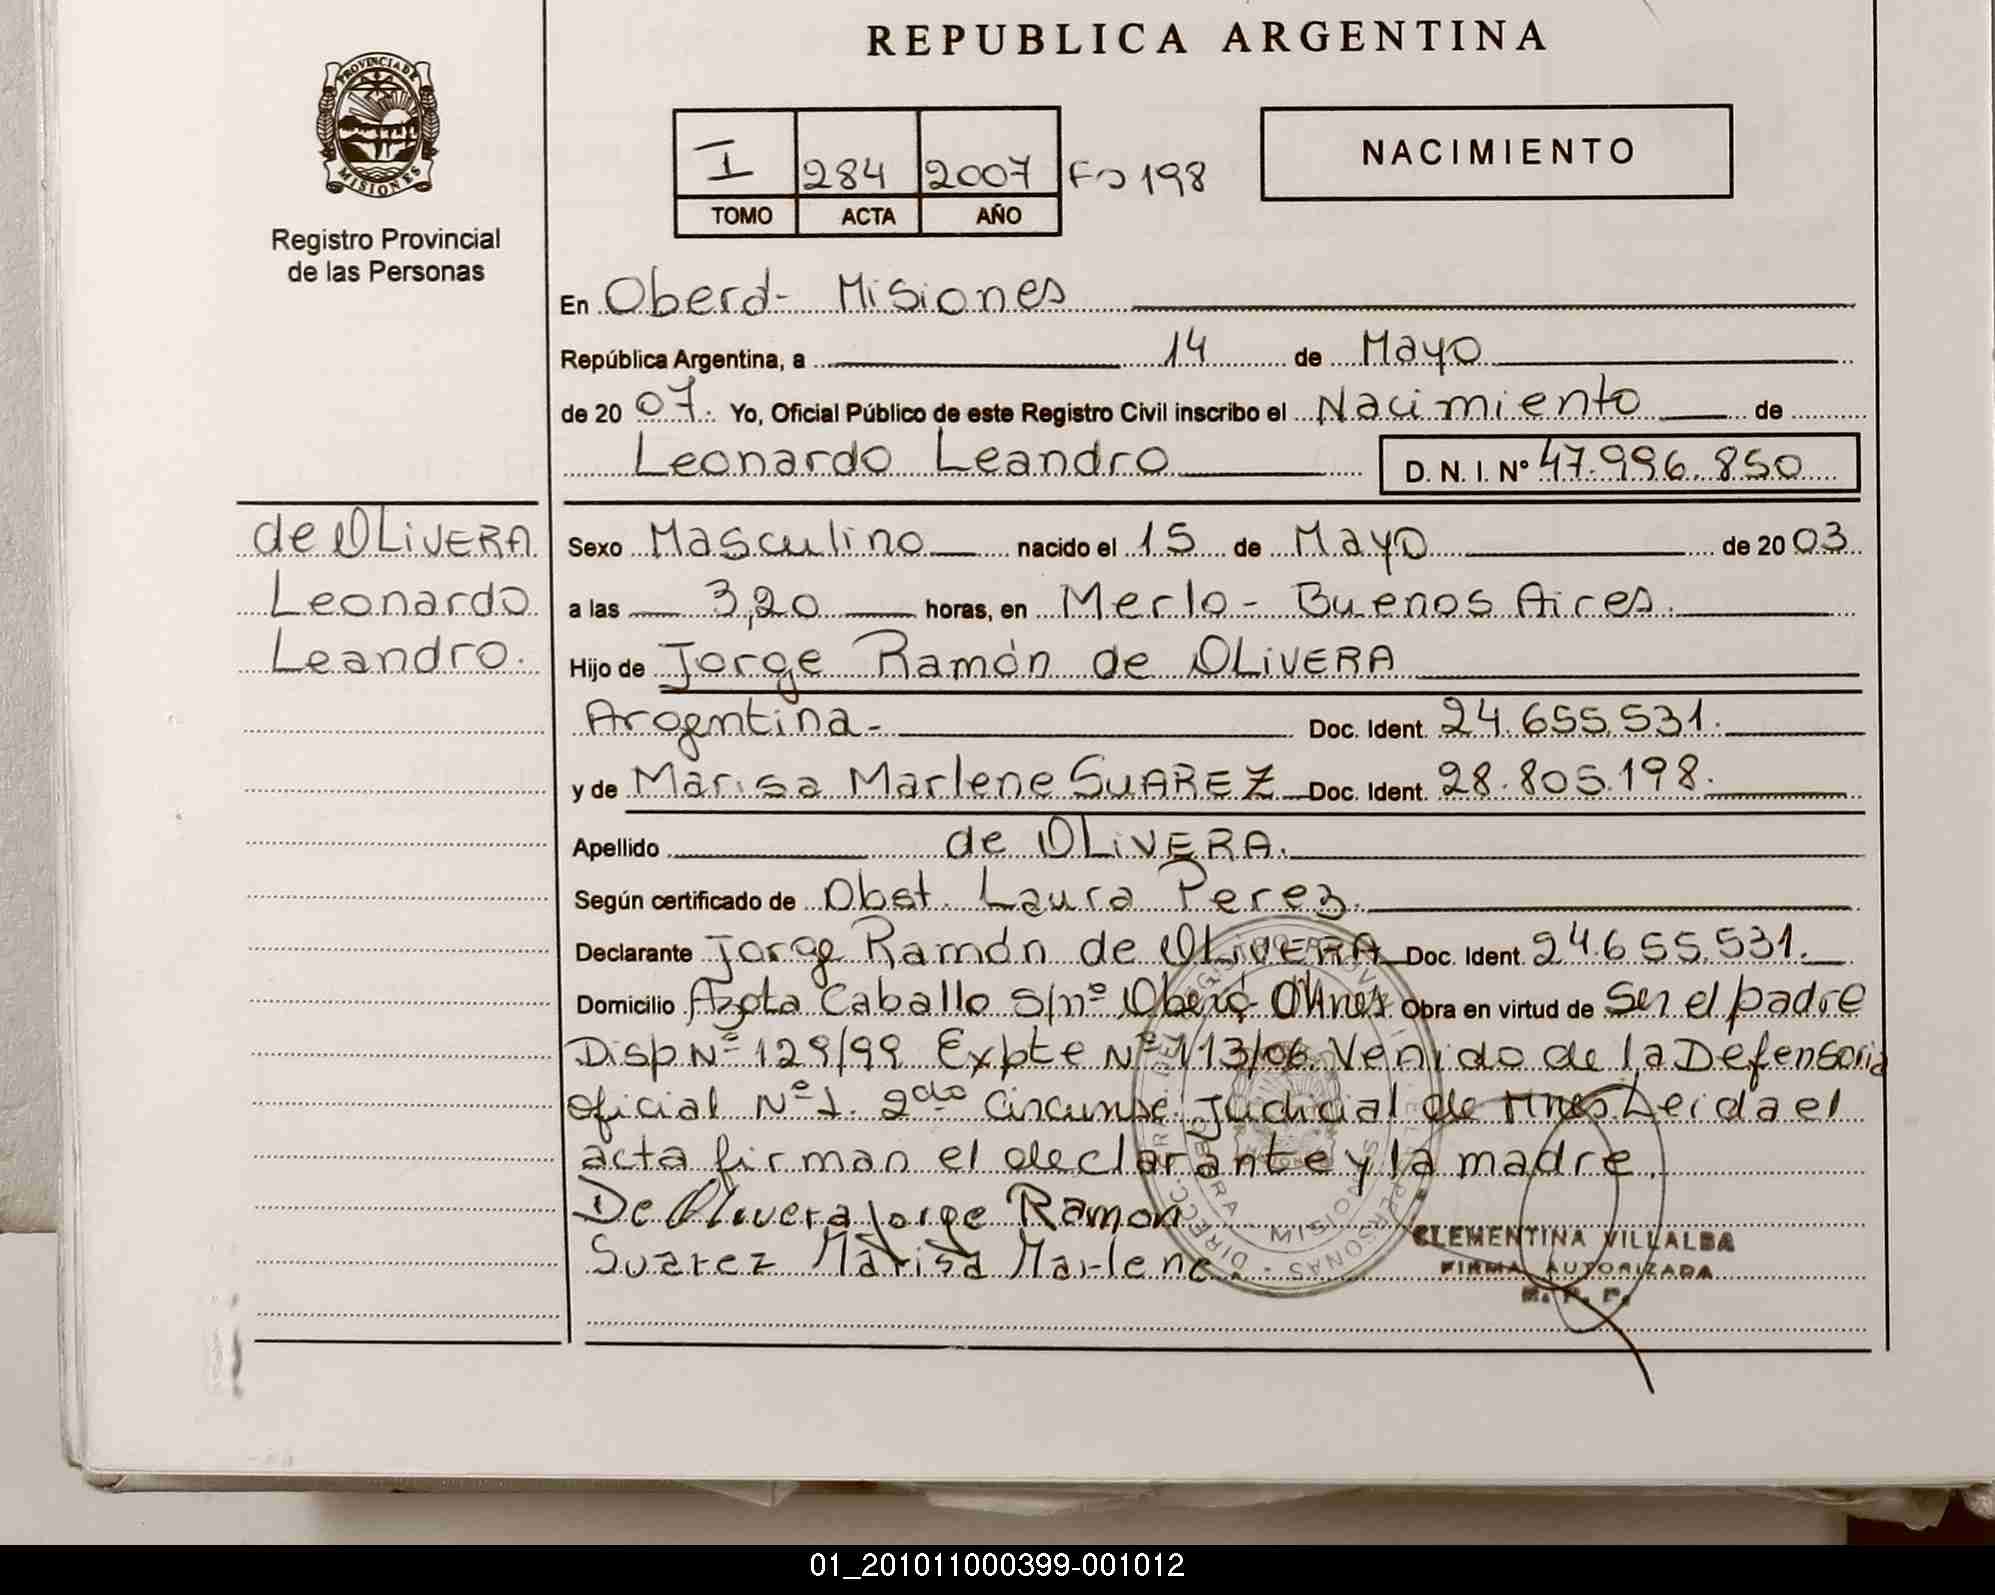 REPUBLICA ARGENTINA
PROVINCIA DE MISIONES
Registro Provincial
de las Personas
I 284 2007 Fo 198
TOMO ACTA AÑO
NACIMIENTO
En Oberá - Misiones
República Argentina, a 14 de Mayo
de 2007. Yo, Oficial Público de este Registro Civil inscribo el Nacimiento de
Leonardo Leandro D. N. I. Nº 47.996.850
de OLiVERA
Leonardo
Leandro.
Sexo Masculino nacido el 15 de Mayo de 2003
a las 3,20 horas, en Merlo - Buenos Aires.
Hijo de Jorge Ramón de OLiVERA
Argentina - Doc. Ident. 24.655.531.
y de Marisa Marlene SUAREZ Doc. Ident. 28.805.198.
Apellido de OLiVERA.
Según certificado de Obst. Laura Perez.
Declarante Jorge Ramón de OLiVERA Doc. Ident. 24.655.531.
Domicilio Azota Caballo s/nº Oberá Mnes Obra en virtud de Ser el padre
Disp Nº 129/99 Expte Nº 113/06 Venido de la Defensoria
oficial Nº 1. 2da Circunsc. Judicial de Mnes Leida el
acta firman el declarante y la madre.
De Olivera Jorge Ramon
Suarez Marisa Marlene.
CLEMENTINA VILLALBA
FIRMA AUTORIZADA
R. P. P.
01_201011000399-001012